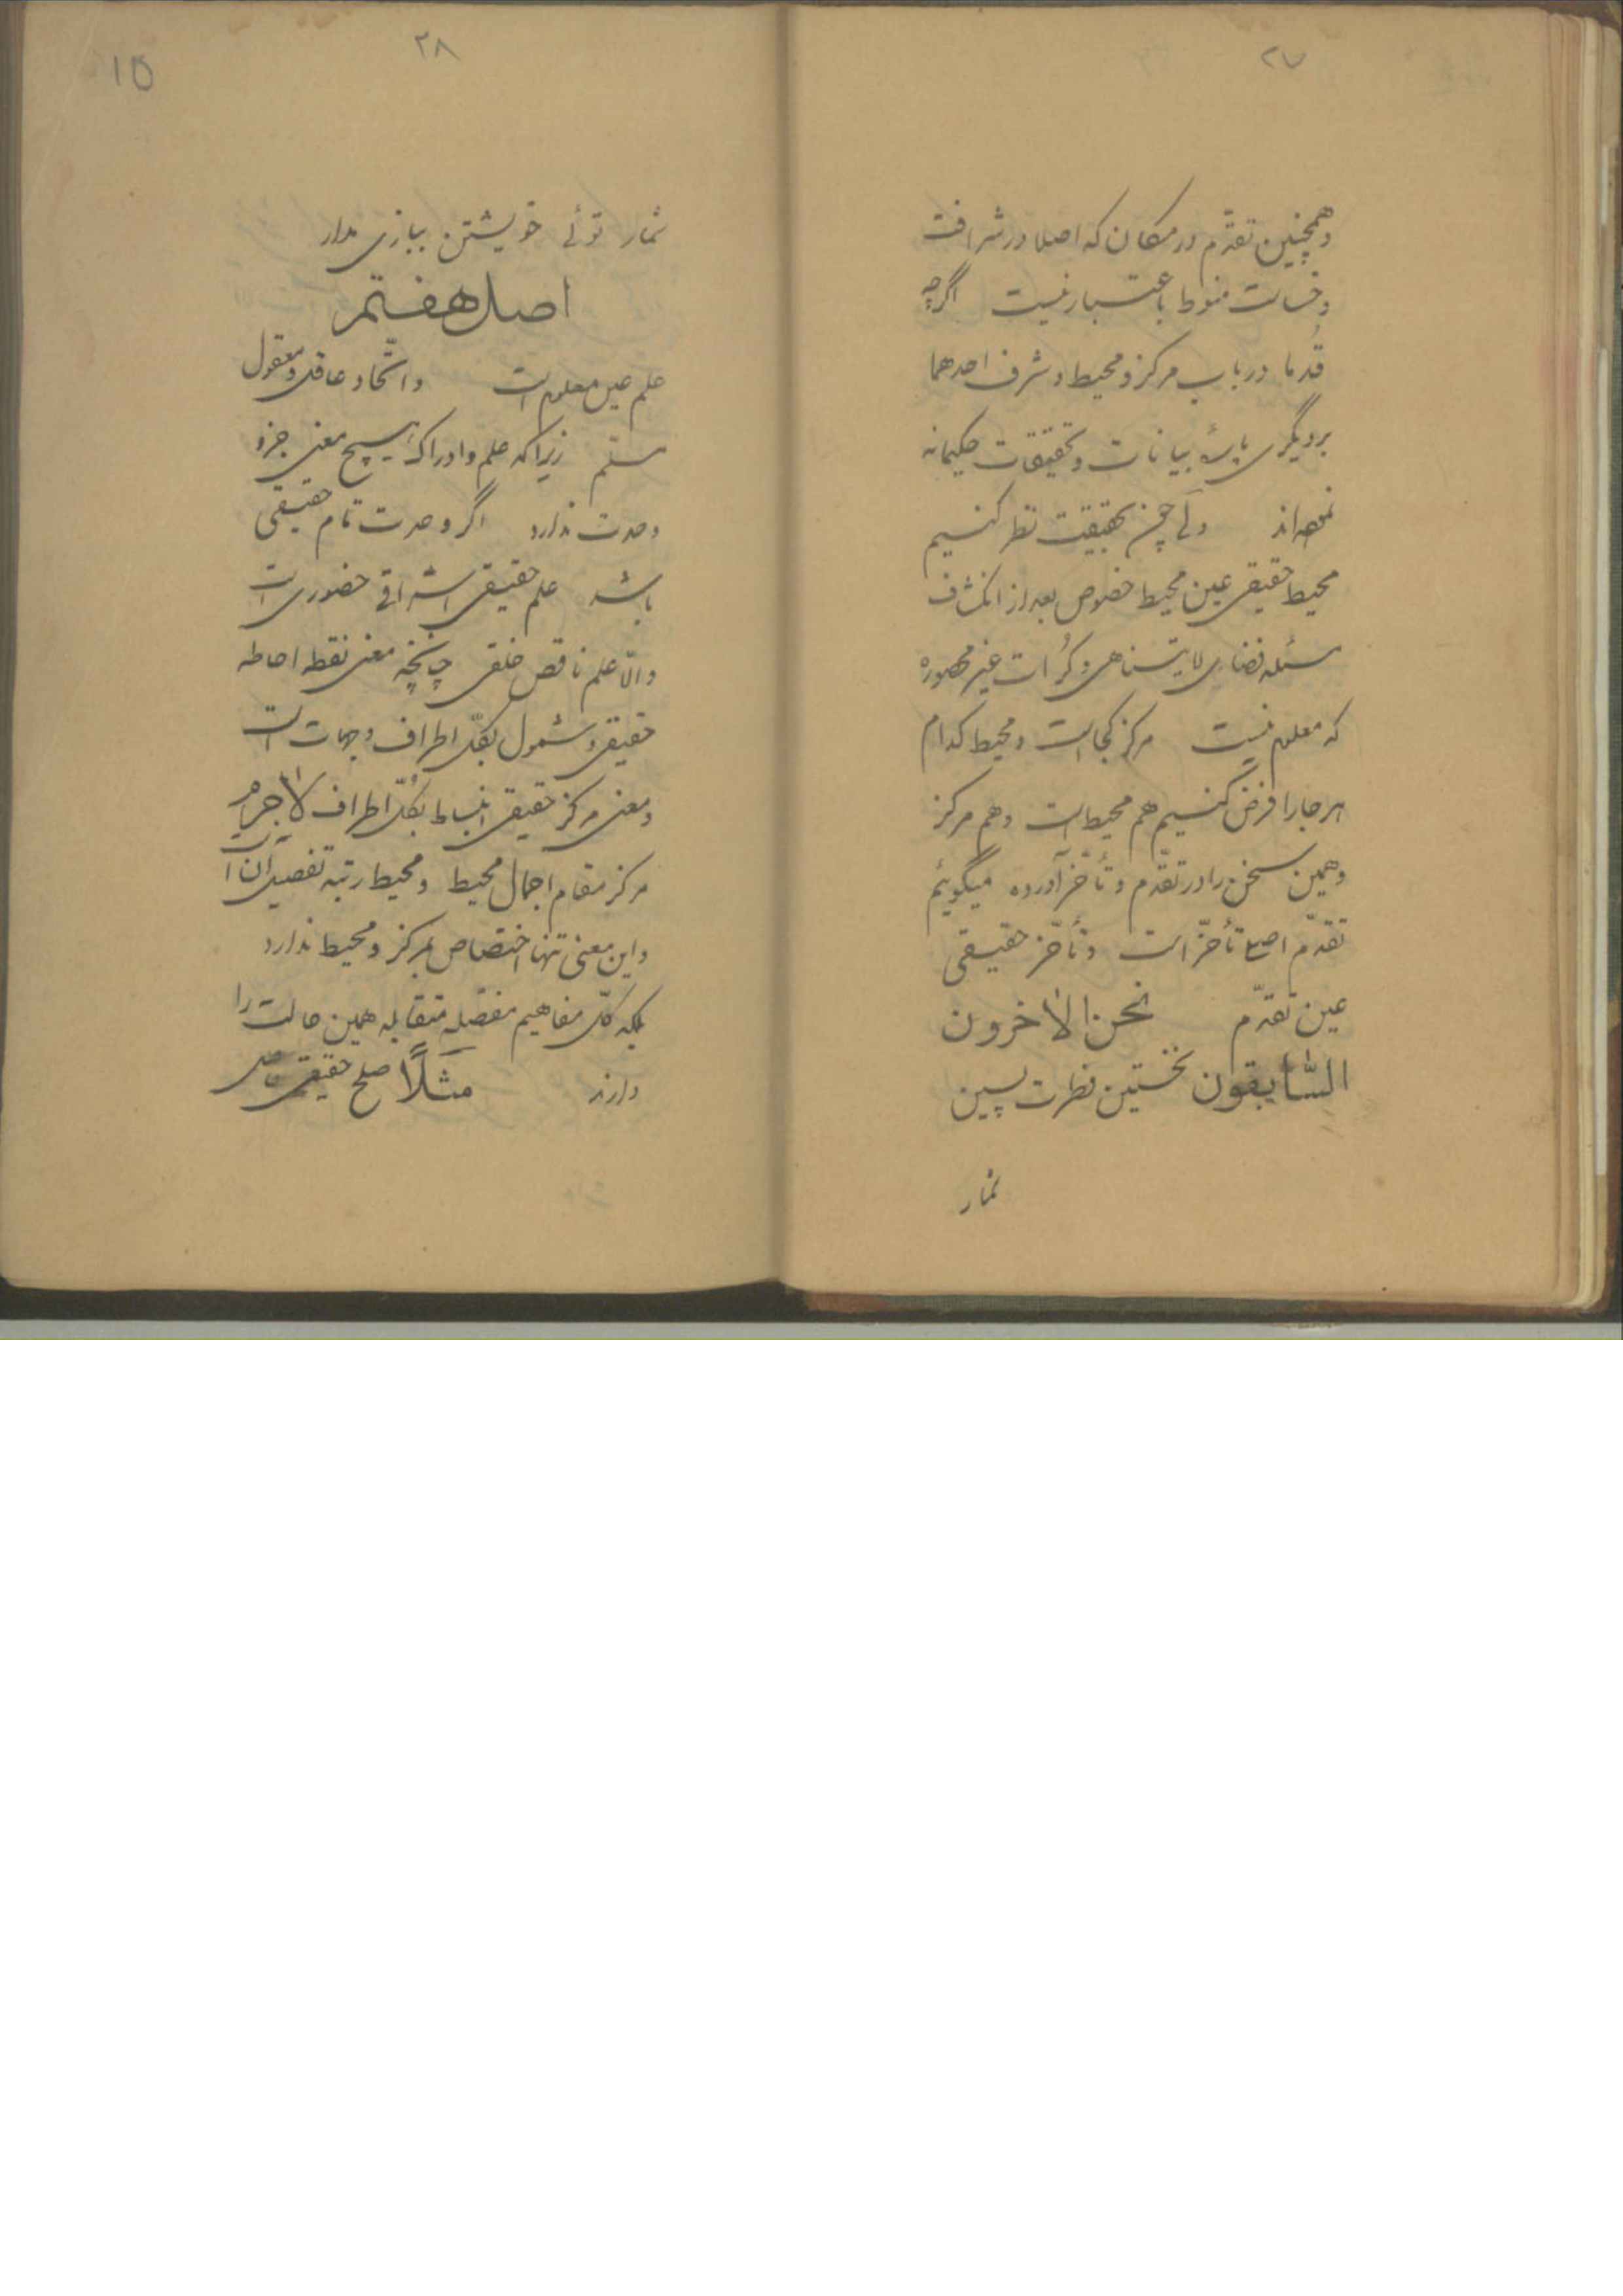 ۲۷
وهمچنین تقدّم در مکان که اصلا در شرافت
و خساست منوط باعتبار نیست اگرچه
قُدما در باب مرکز و محیط و شرف احدهما
بر دیگری پارهٔ بیانات و تحقیقات حکیمانه
نموده‌اند ولی چون بحقیقت نظر کنیم
محیط حقیقی عین محیط خصوص بعد از انکشاف
مسئله فضای لایتناهی و کُرات غیر محصوره
که معلوم نیست مرکز کجاست و محیط کدام
هر جا را فرض کنیم هم محیط است و هم مرکز
وهمین سخن را در تقدّم و تأخّر آورده میگوئیم
تقدّم اصل تأخّر است و تأخّر حقیقی
عین تقدّم نحن الاخرون
السّابقون نخستین فطرت پسین
شمار
۲۸
15
شمار توئی خویشتن ببازی مدار
اصل هفتم
علم عین معلوم است و اتّحاد عاقل و معقول
مسلّم زیرا که علم و ادراک هیچ معنی جز و
وحدت ندارد اگر وحدت تام حقیقی
باشد علم حقیقی اشراقی حضوری است
والّا علم ناقص خلقی چنانچه معنی نقطه احاطه
حقیقی و شمول بکلّ اطراف و جهات است
ومعنی مرکز حقیقی انبساط بکُلّ اطراف لاجرم
مرکز مقام اجمال محیط و محیط رتبه تفصیل آن است
واین معنی تنها اختصاص بمرکز و محیط ندارد
بلکه کلّ مفاهیم مفصّله متقابله همین حالت را
دارند مثلاً صلح حقیقی